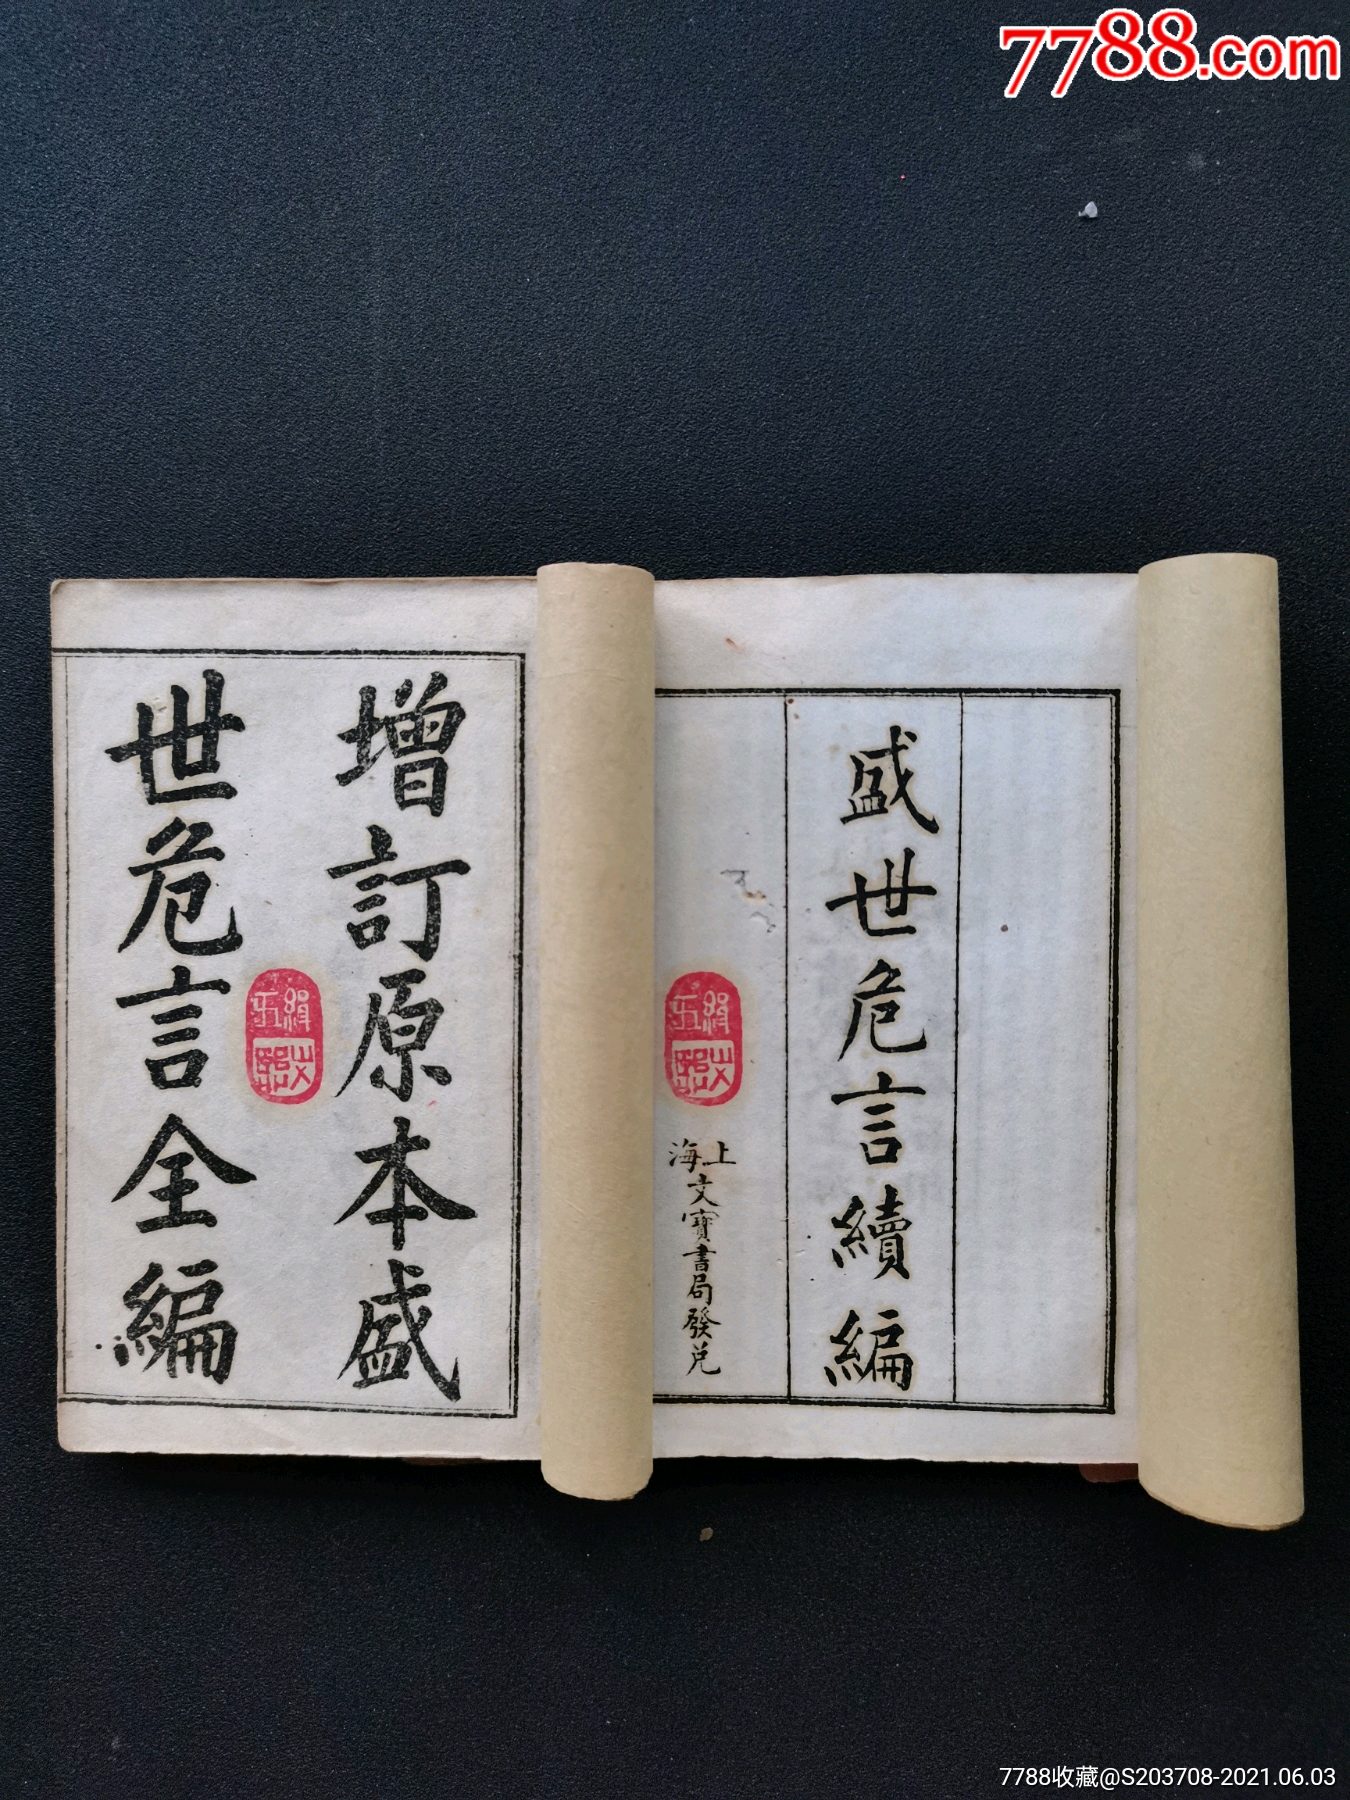 7788.com
盛世危言續編
上海文寶書局發兑
增訂原本盛
世危言全編
7788收藏@S203708-2021.06.03